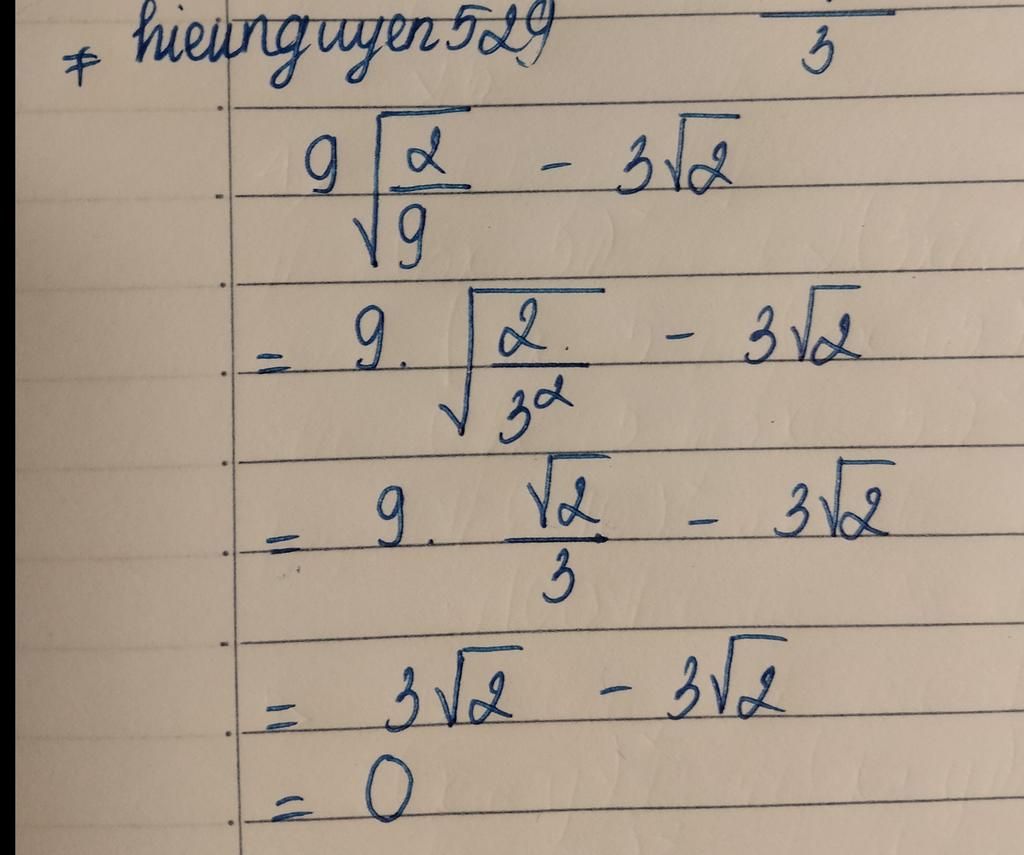 ≠ hieunguyen529
3
9√(2/9) - 3√2
= 9. √(2/3²) - 3√2
= 9. √2/3 - 3√2
= 3√2 - 3√2
= 0